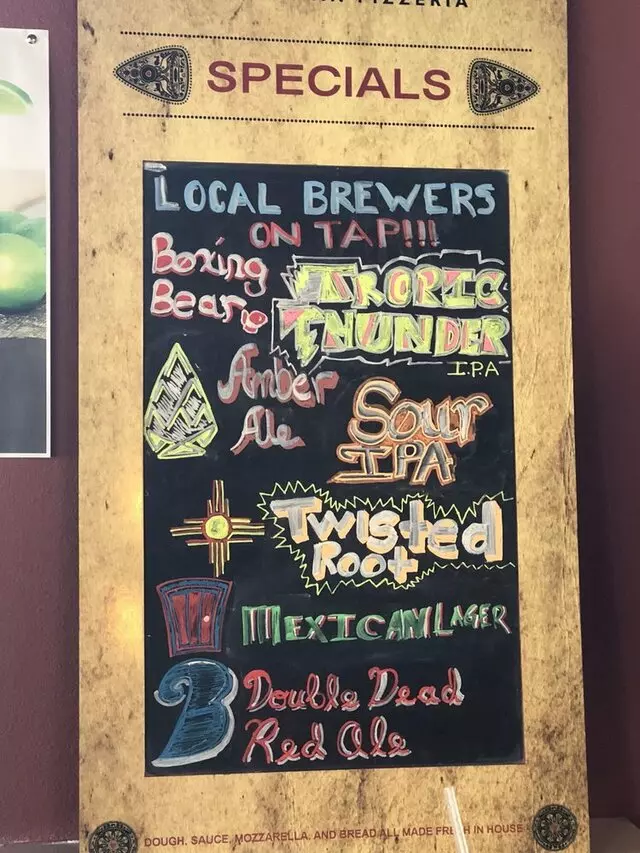 PIZZERIA
SPECIALS
LOCAL BREWERS
ON TAP!!!
Boxing
Bear
TROPIC
THUNDER
I.P.A
Amber
Ale
Sour
IPA
Twisted
Root
MEXICAN LAGER
Double Dead
Red Ale
DOUGH, SAUCE, MOZZARELLA, AND BREAD ALL MADE FRESH IN HOUSE